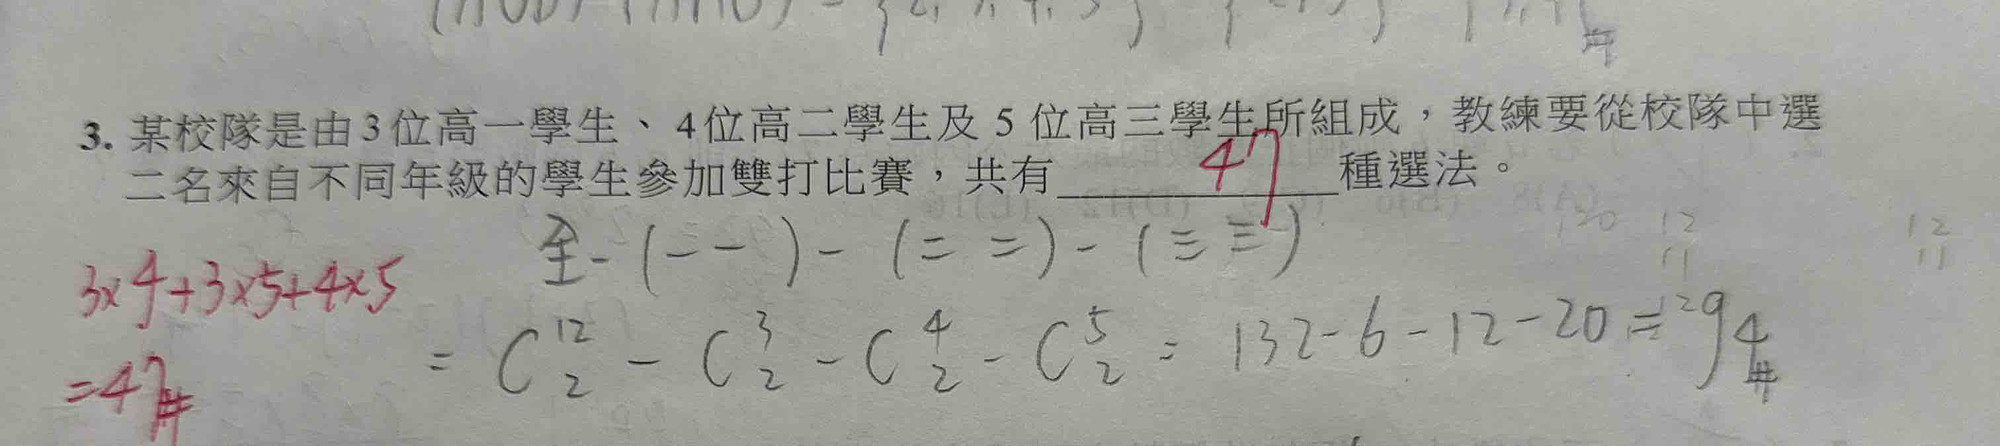 3. 某校隊是由3位高一學生、4位高二學生及5位高三學生所組成，教練要從校隊中選
二名來自不同年級的學生參加雙打比賽，共有 47 種選法。
全-(一一)-(二二)-(三三)
3×4+3×5+4×5
=47#
= C¹²₂ - C³₂ - C⁴₂ - C⁵₂ = 132-6-12-20 = 94#
120 12
11
12
11